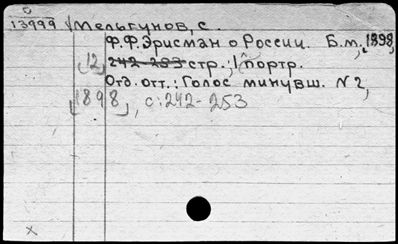 0
13999 Мельгунов, С.
Ф.Ф.Эрисман о России. Б.м., 1898,
12, 242-253 стр.; 1 портр.
Отд. отт.: Голос минувш. N 2,
1898, с: 242-253
x